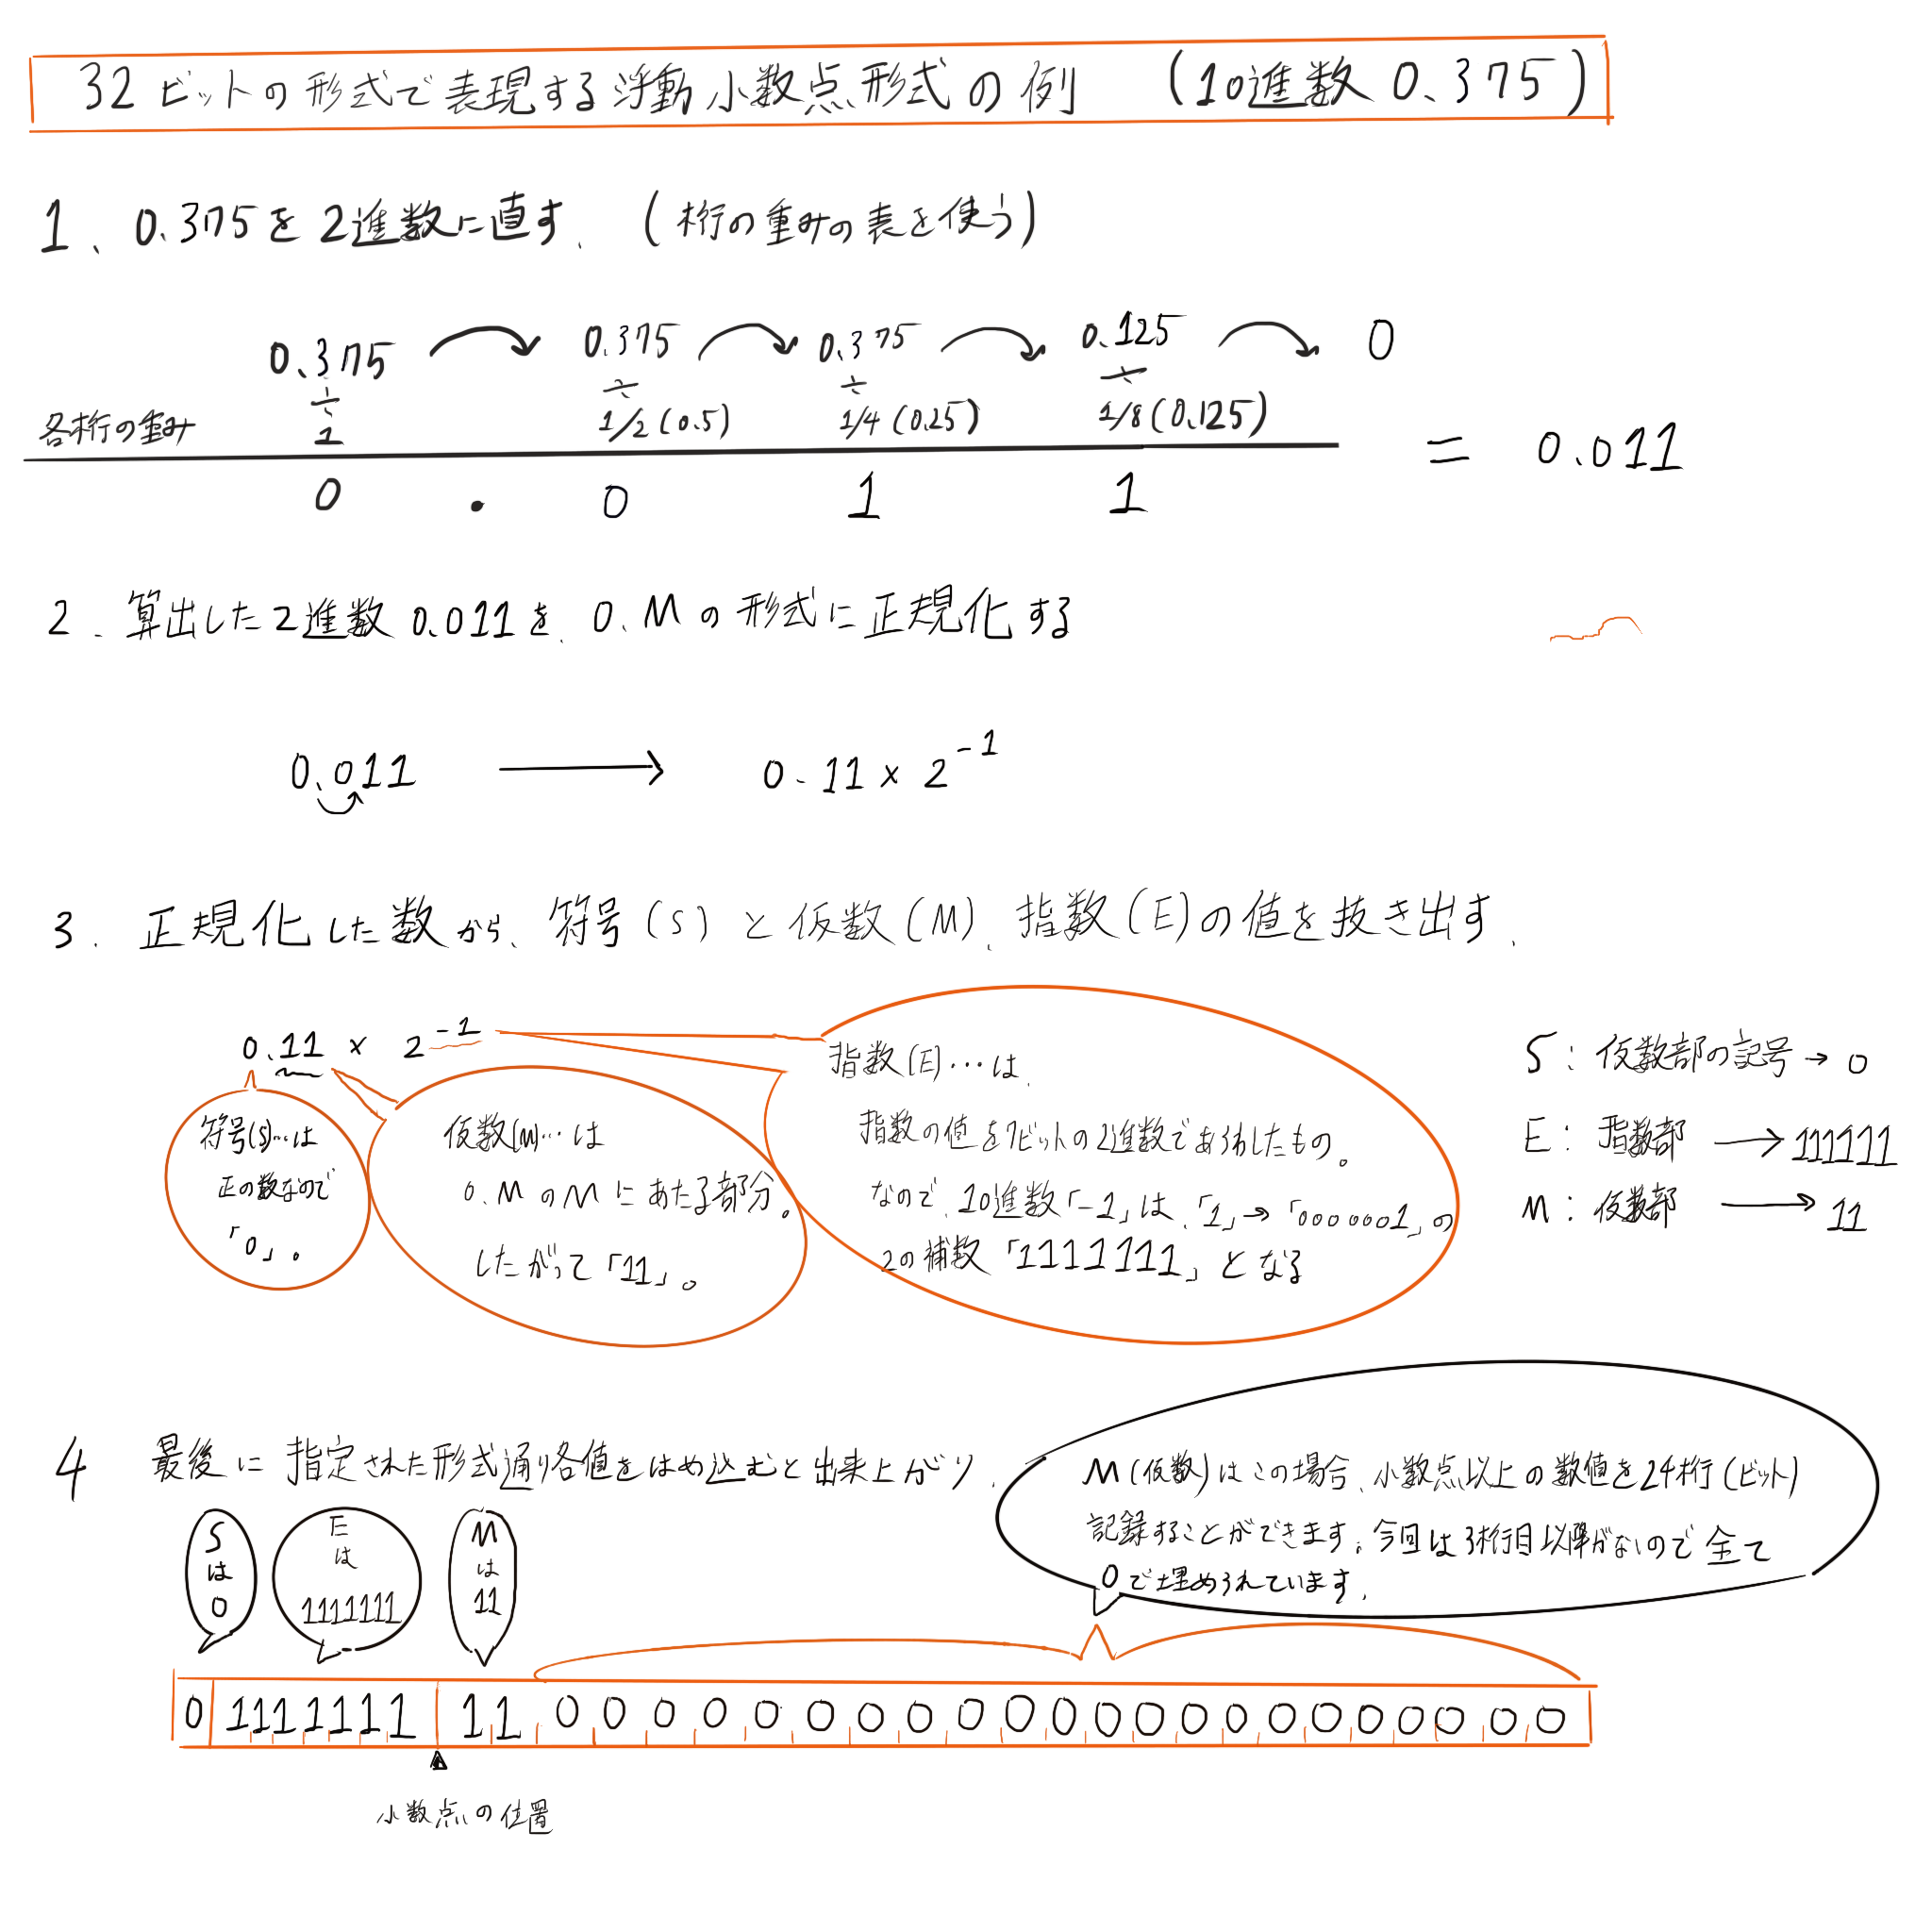 32ビットの形式で表現する浮動小数点形式の例 (10進数 0.375)
1、0.375を2進数に直す、(桁の重みの表を使う)
0.375 0.375 0.375 0.125 0
÷ ÷ ÷ ÷
各桁の重み 1 1/2(0.5) 1/4(0.25) 1/8(0.125)
0 . 0 1 1 = 0.011
2、算出した2進数0.011を、0.Mの形式に正規化する
0.011 → 0.11 × 2^-1
3、正規化した数から、符号(S)と仮数(M)、指数(E)の値を抜き出す、
0.11 × 2^-1
符号(S)…は
正の数なので
「0」。
仮数(M)…は
0.MのMにあたる部分。
したがって「11」。
指数(E)…は、
指数の値を7ビットの2進数であらわしたもの。
なので、10進数「-1」は、「1」→「0000001」の
2の補数「1111111」となる
S:仮数部の記号→0
E:指数部→111111
M:仮数部→11
4 最後に指定された形式通り各値をはめ込むと出来上がり、
M(仮数)はこの場合、小数点以上の数値を24桁(ビット)
記録することができます。今回は3桁目以降がないので全て
0で埋められています、
Sは0
Eは
1111111
Mは
11
0 1111111 11 0000000000000000000000
小数点の位置